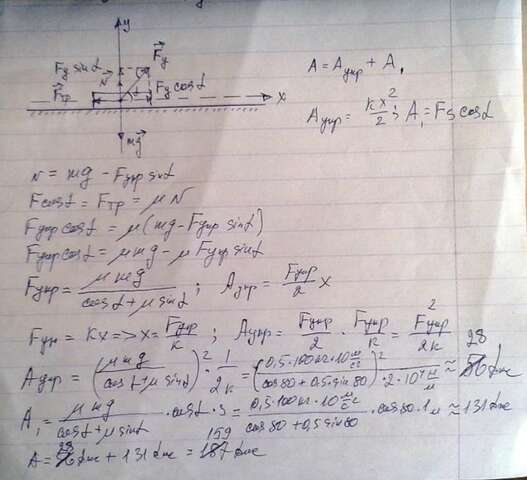 y
F_y sinα
F⃗_y
N⃗
F⃗_тр
α
F_y cosα
x
mg⃗
A = A_упр + A₁
A_упр = kx²/2; A₁ = FS cosα
N = mg - F_упр sinα
F cosα = F_тр = μN
F_упр cosα = μ(mg - F_упр sinα)
F_упр cosα = μmg - μ F_упр sinα
F_упр = μmg/(cosα + μ sinα); A_упр = F_упр/2 x
F_уп = kx => x = F_упр/k; A_упр = F_упр/2 · F_упр/k = F²_упр/2k
A_упр = (μmg/(cosα + μ sinα))² · 1/2k = (0,5·100кг·10 м/с²/(cos80 + 0,5·sin80))² · 2·10⁴ н/м ≈ 28 дж
A₁ = μmg/(cosα + μ sinα) · cosα · s = 0,5·100кг·10 м/с²/(cos80 + 0,5 sin80) · cos80 · 1м ≈ 131 дж
A = 28 дж + 131 дж = 159 дж